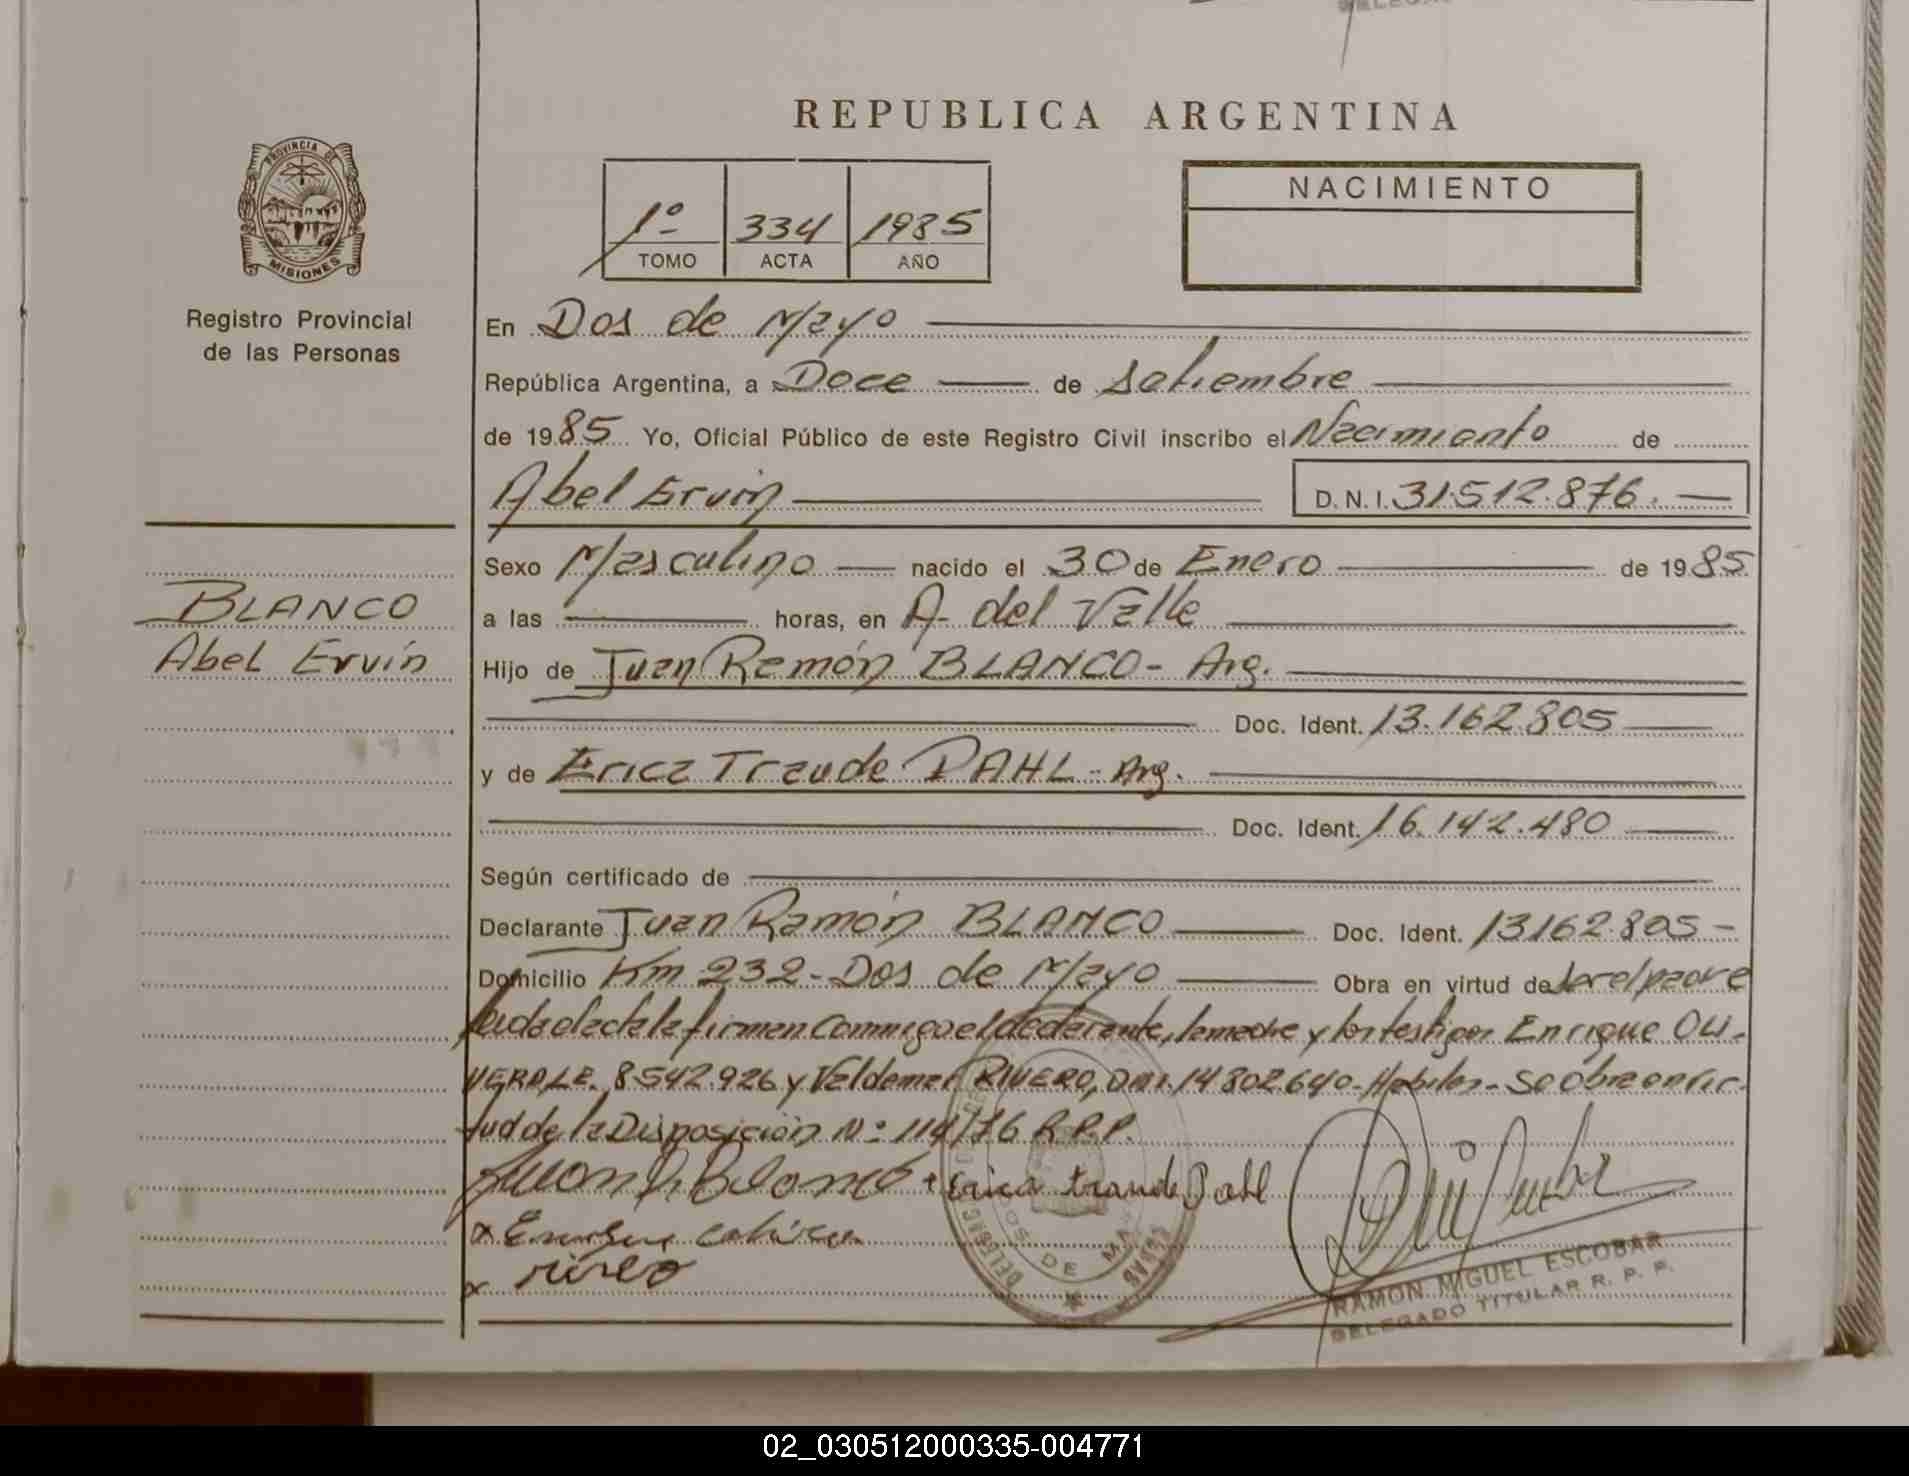 REPUBLICA ARGENTINA
PROVINCIA DE
MISIONES
Registro Provincial
de las Personas
1º 334 1985
TOMO ACTA AÑO
NACIMIENTO
En Dos de Mayo
República Argentina, a Doce de Setiembre
de 1985 Yo, Oficial Público de este Registro Civil inscribo el Nacimiento de
Abel Ervin D.N.I. 31.512.876.
Sexo Masculino nacido el 30 de Enero de 1985
BLANCO
Abel Ervin
a las horas, en A. del Valle
Hijo de Juan Ramón BLANCO - Arg.
Doc. Ident. 13.162.805
y de Erica Traude DAHL - Arg.
Doc. Ident. 16.142.480
Según certificado de
Declarante Juan Ramón BLANCO Doc. Ident. 13162.805-
Domicilio Km 232 - Dos de Mayo Obra en virtud de ser el padre
Leida el acta la firman conmigo el declarante, la madre y los testigos Enrique OLI-
VERA L.E. 8.542.926 y Valdemar RIVERO, DNI. 14.802.640 - Habiles - Se obra en vir-
tud de la Disposición Nº 114/76 R.P.P.
Juan R. Blanco Erica traude Dahl
x Enrique
x
DOS DE MAYO
RAMON MIGUEL ESCOBAR
DELEGADO TITULAR R. P. P.
02_030512000335-004771